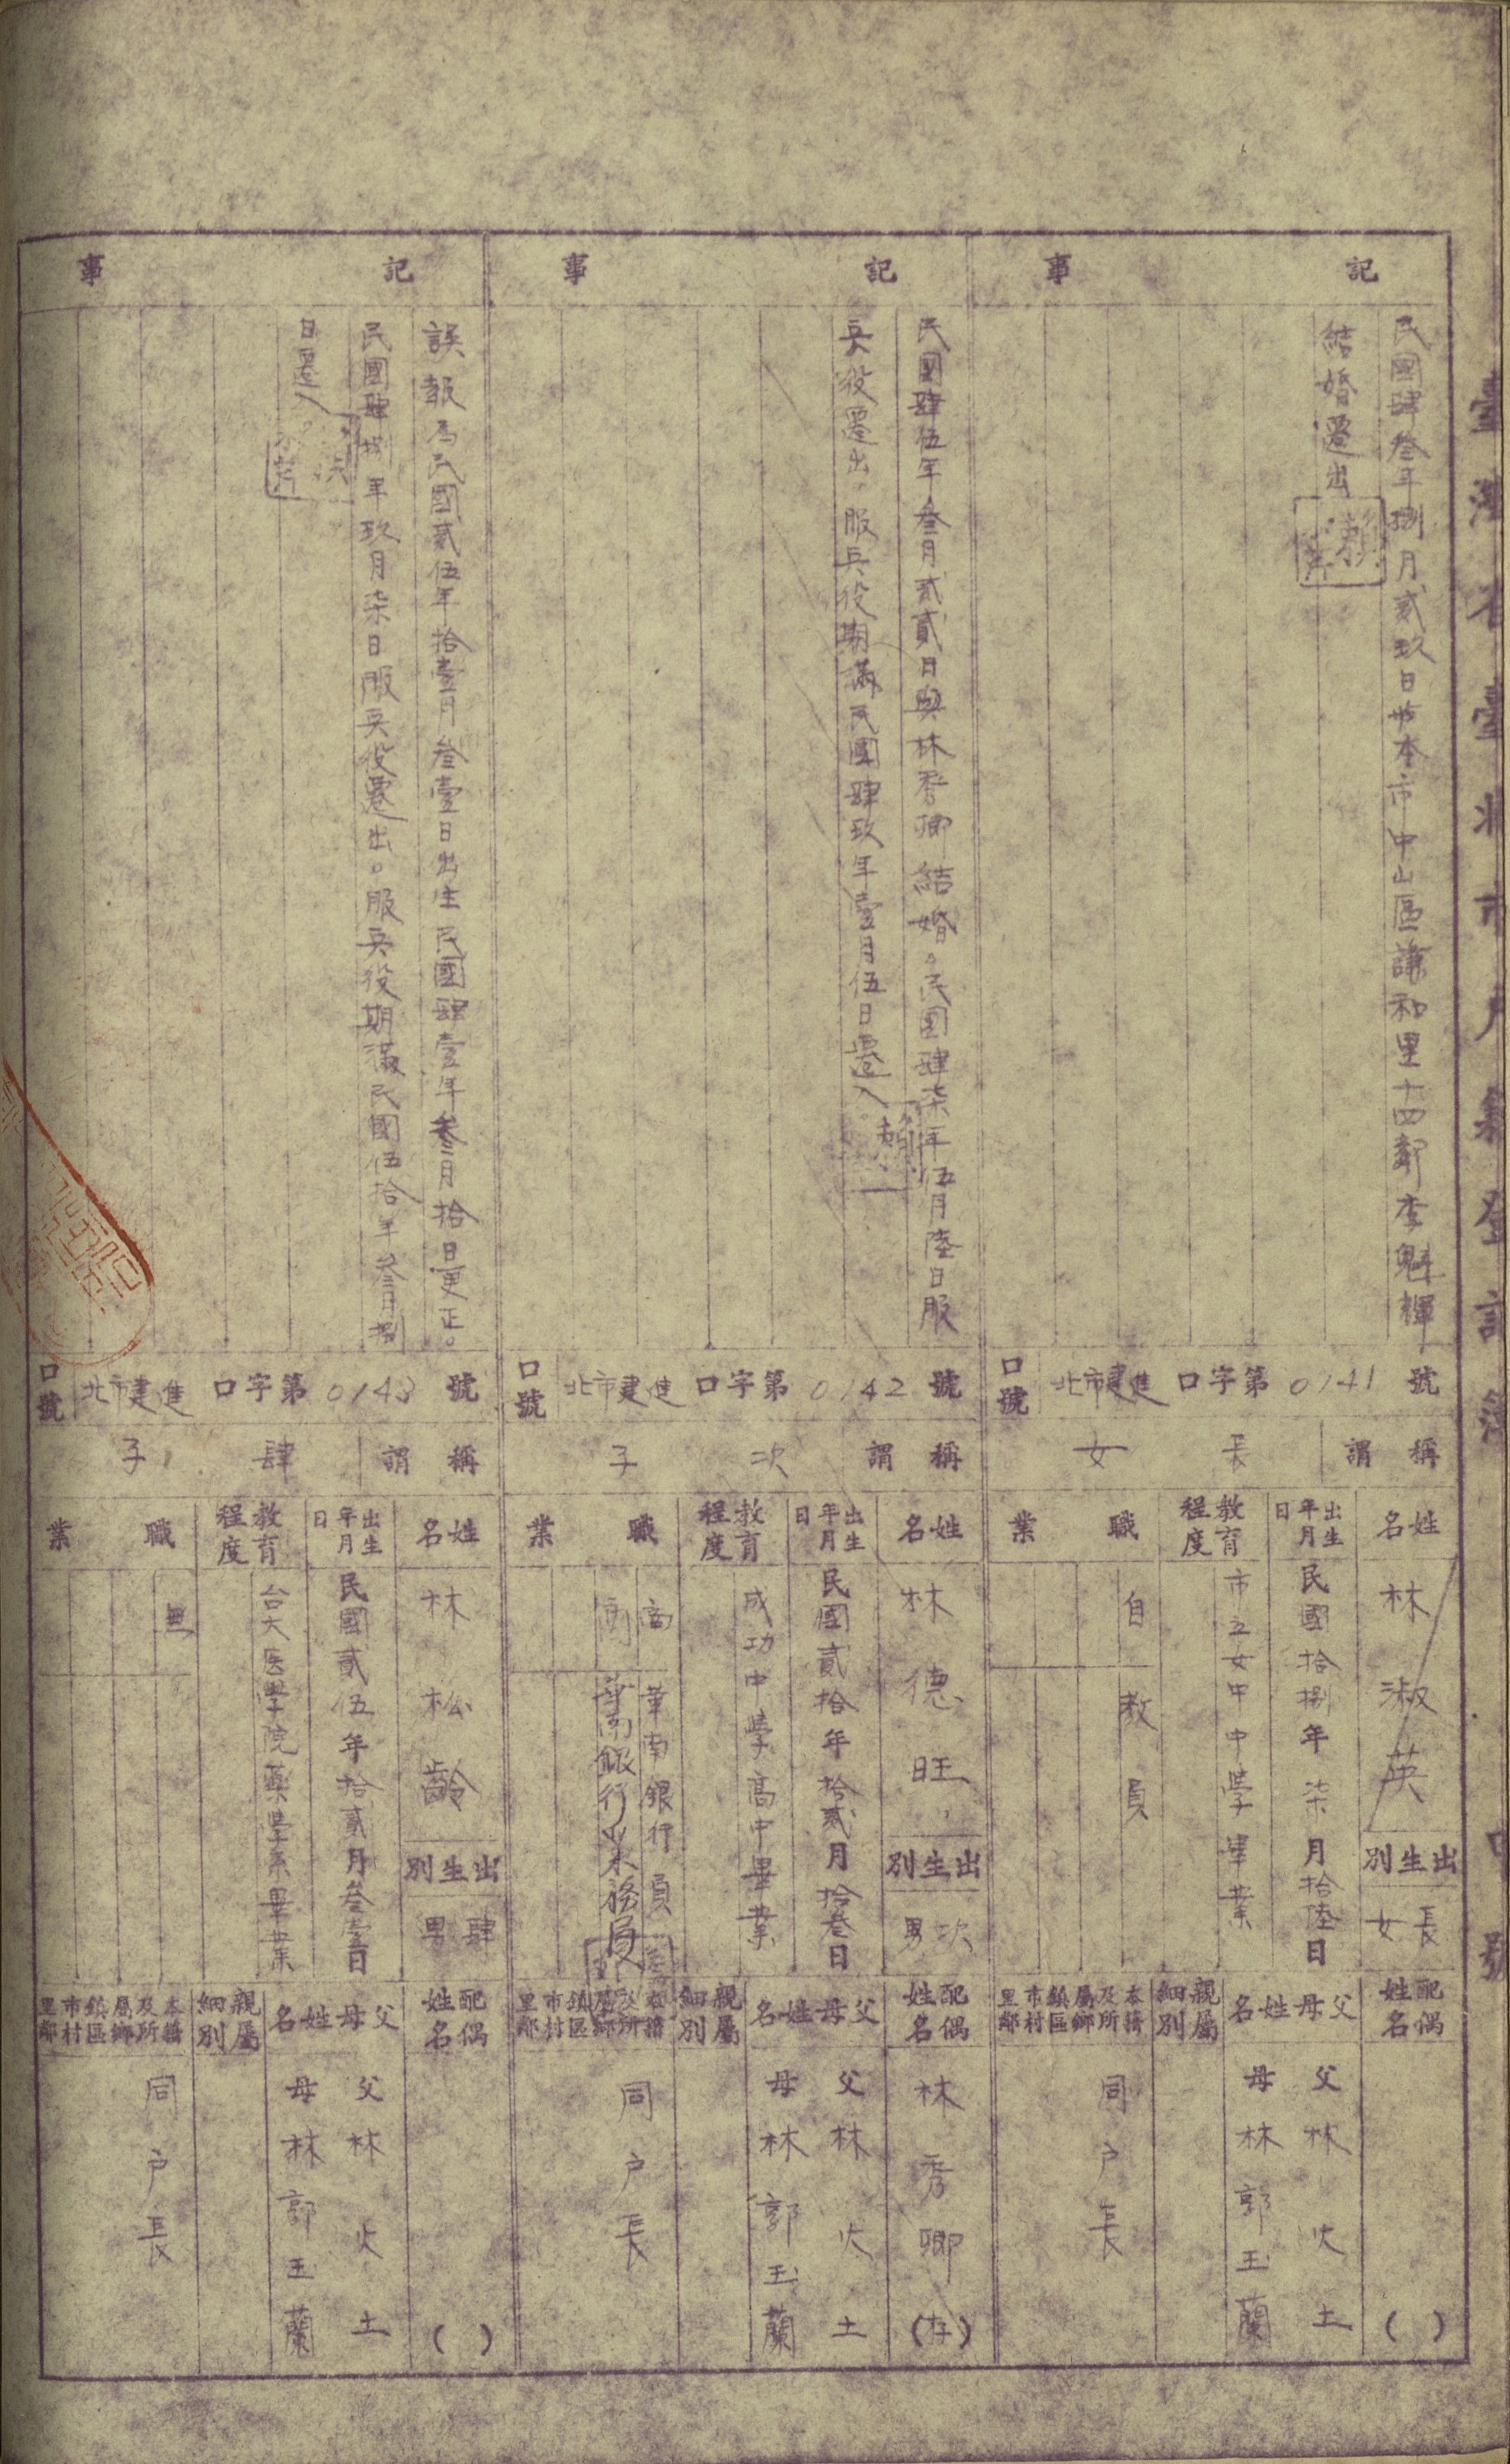 臺灣省臺北市戶籍登記簿
口號
記事
民國肆叁年捌月貳玖日與本市中山區謙和里十四鄰李魁輝
結婚遷出
賴
口號 北市建進口字第0141號
稱謂 長女
姓名 林淑英
出生別 長女
出生年月日 民國拾捌年柒月拾陸日
教育程度 市立女中中學畢業
職業 自 教員
配偶姓名 ( )
父母姓名 父 林火土
母 林郭玉蘭
親屬細別
本籍及所屬鄉鎮區市村里鄰 同戶長
記事
民國肆伍年叁月貳貳日與林秀卿結婚。民國肆柒年伍月陸日服
兵役遷出，服兵役期滿民國肆玖年壹月伍日遷入。
賴
口號 北市建進口字第0142號
稱謂 次子
姓名 林德旺
出生別 次男
出生年月日 民國貳拾年拾貳月拾叁日
教育程度 成功中學高中畢業
職業 商 華南銀行員
商 華南銀行業務員
配偶姓名 林秀卿(存)
父母姓名 父 林火土
母 林郭玉蘭
親屬細別
本籍及所屬鄉鎮區市村里鄰 同戶長
記事
誤報為民國貳伍年拾壹月叁壹日出生民國肆壹年叁月拾日更正。
民國肆捌年玖月柒日服兵役遷出。服兵役期滿民國伍拾年叁月捌
日遷入。
口號 北市建進口字第0143號
稱謂 肆子
姓名 林松齡
出生別 肆男
出生年月日 民國貳伍年拾貳月叁壹日
教育程度 台大医學院藥學系畢業
職業 無
配偶姓名 ( )
父母姓名 父 林火土
母 林郭玉蘭
親屬細別
本籍及所屬鄉鎮區市村里鄰 同戶長